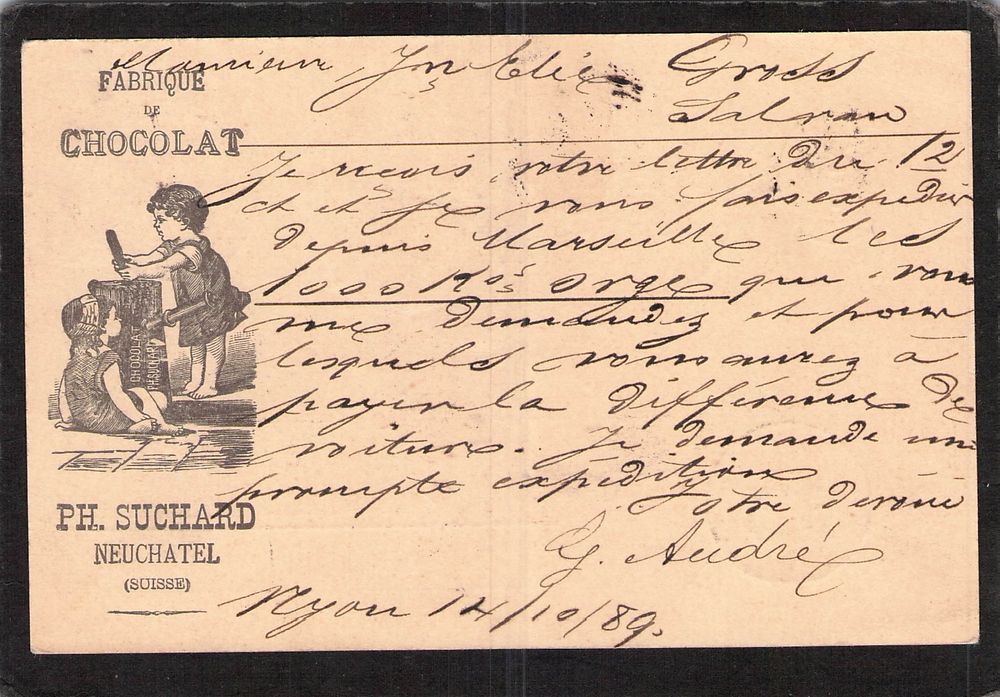 FABRIQUE
DE
CHOCOLAT
CHOCOLAT
PH. SUCHARD
PH. SUCHARD
NEUCHATEL
(SUISSE)
Monsieur Jn Elie Gross
Salvan
Je reçois votre lettre du 12
ct et je vous fais expédier
depuis Marseille les
1000 Kos orge que vous
me demandez et pour
lesquels vous aurez à
payer la différence de
voiture. Je demande une
prompte expédition
Votre dévoué
G. André
Nyon 14/10/89.